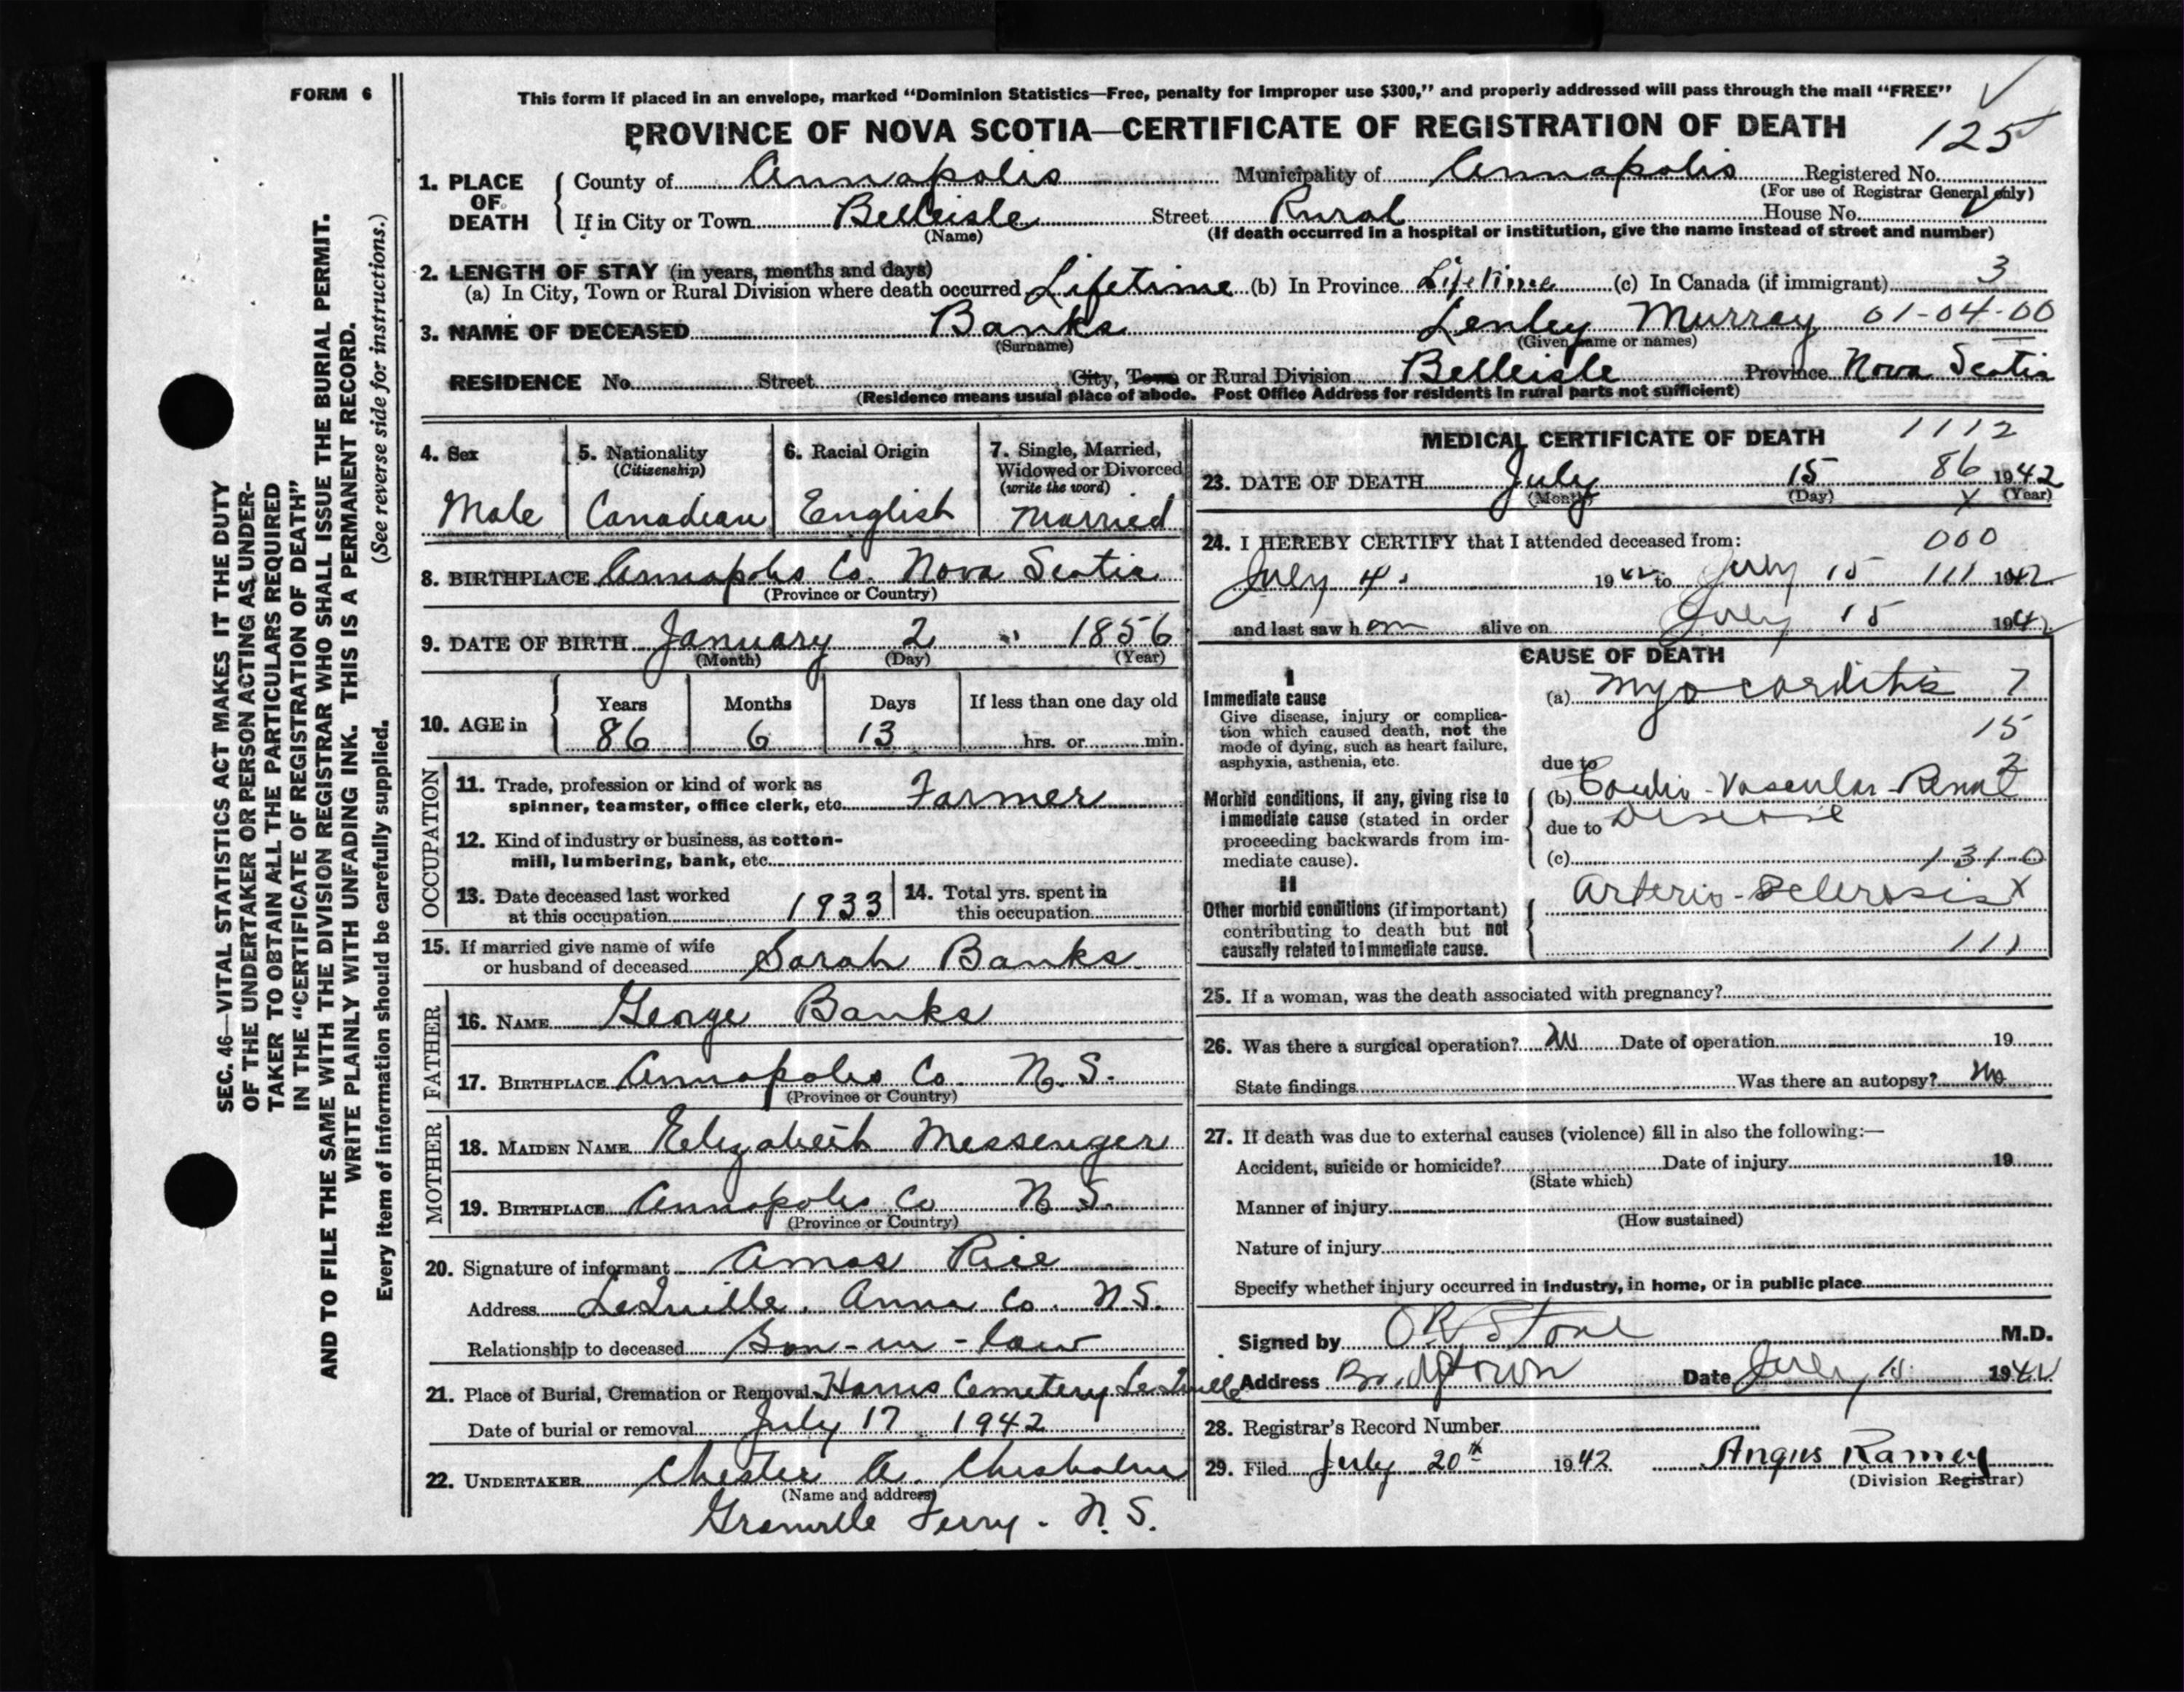 FORM 6
This form if placed in an envelope, marked “Dominion Statistics—Free, penalty for improper use $300,” and properly addressed will pass through the mail “FREE”
PROVINCE OF NOVA SCOTIA—CERTIFICATE OF REGISTRATION OF DEATH
125
1. PLACE OF DEATH
County of Annapolis Municipality of Annapolis Registered No.
(For use of Registrar General only)
If in City or Town Belleisle Street Rural House No.
(Name) (If death occurred in a hospital or institution, give the name instead of street and number)
2. LENGTH OF STAY (in years, months and days)
(a) In City, Town or Rural Division where death occurred Lifetime (b) In Province Lifetime (c) In Canada (if immigrant) 3
3. NAME OF DECEASED Banks Lenley Murray 01-04-00
(Surname) (Given name or names)
RESIDENCE No. Street City, Town or Rural Division Belleisle Province Nova Scotia
(Residence means usual place of abode. Post Office Address for residents in rural parts not sufficient)
4. Sex
Male
5. Nationality
(Citizenship)
Canadian
6. Racial Origin
English
7. Single, Married,
Widowed or Divorced
(write the word)
Married
8. BIRTHPLACE Annapolis Co. Nova Scotia
(Province or Country)
9. DATE OF BIRTH January 2 1856
(Month) (Day) (Year)
10. AGE in
Years Months Days If less than one day old
86 6 13 hrs. or min.
OCCUPATION
11. Trade, profession or kind of work as
spinner, teamster, office clerk, etc. Farmer
12. Kind of industry or business, as cotton-
mill, lumbering, bank, etc.
13. Date deceased last worked
at this occupation 1933
14. Total yrs. spent in
this occupation
15. If married give name of wife
or husband of deceased Sarah Banks
FATHER
16. NAME George Banks
17. BIRTHPLACE Annapolis Co. N.S.
(Province or Country)
MOTHER
18. MAIDEN NAME Elizabeth Messenger
19. BIRTHPLACE Annapolis Co N.S.
(Province or Country)
20. Signature of informant Amos Rice
Address LeQuille. Anna Co. N.S.
Relationship to deceased Son-in-law
21. Place of Burial, Cremation or Removal Harris Cemetery LeQuille
Date of burial or removal July 17 1942
22. UNDERTAKER Chester A. Chisholm
(Name and address)
Granville Ferry. N.S.
MEDICAL CERTIFICATE OF DEATH
1112
86
23. DATE OF DEATH July 15 1942
(Month) (Day) (Year)
X
24. I HEREBY CERTIFY that I attended deceased from:
000
July 4. 1942 to July 15 111 1942
and last saw h alive on July 15 1942
CAUSE OF DEATH
I
Immediate cause
Give disease, injury or complica-
tion which caused death, not the
mode of dying, such as heart failure,
asphyxia, asthenia, etc.
(a) Myocarditis 7
15
2
due to
Morbid conditions, if any, giving rise to
immediate cause (stated in order
proceeding backwards from im-
mediate cause).
(b) Cardio-Vascular-Renal
due to Disease
(c) 131 0
II
Other morbid conditions (if important)
contributing to death but not
causally related to immediate cause.
Arterio-Sclerosis X
111
25. If a woman, was the death associated with pregnancy?
26. Was there a surgical operation? No Date of operation 19
State findings Was there an autopsy? No
27. If death was due to external causes (violence) fill in also the following:—
Accident, suicide or homicide? Date of injury 19
(State which)
Manner of injury
(How sustained)
Nature of injury
Specify whether injury occurred in industry, in home, or in public place
Signed by Stone M.D.
Address Bridgtown Date July 1942
28. Registrar's Record Number
29. Filed July 20th 1942 Angus Ramey
(Division Registrar)
SEC. 46—VITAL STATISTICS ACT MAKES IT THE DUTY
OF THE UNDERTAKER OR PERSON ACTING AS UNDER-
TAKER TO OBTAIN ALL THE PARTICULARS REQUIRED
IN THE “CERTIFICATE OF REGISTRATION OF DEATH”
AND TO FILE THE SAME WITH THE DIVISION REGISTRAR WHO SHALL ISSUE THE BURIAL PERMIT.
WRITE PLAINLY WITH UNFADING INK. THIS IS A PERMANENT RECORD.
Every item of information should be carefully supplied. (See reverse side for instructions.)